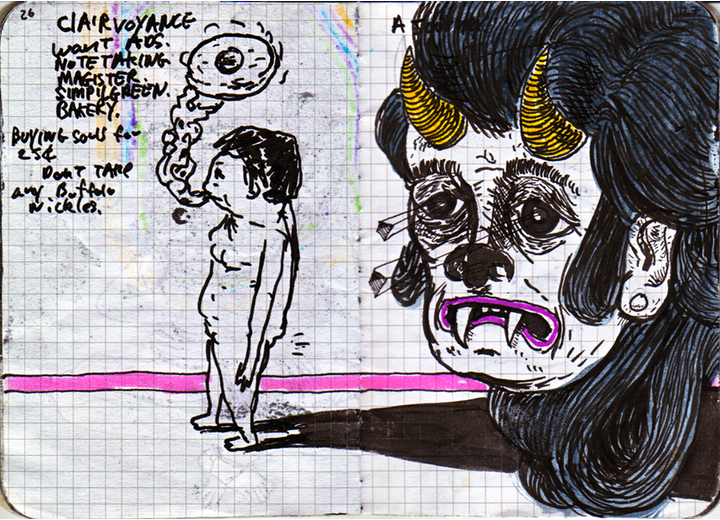 26
CLAIRVOYANCE
WANT ADS.
NOTETAKING
MAGISTER.
SIMPLGREEN.
BAKERY.
BUYING SOULS for
25¢
DON'T TAKE
any Buffalo
Nickles.
A